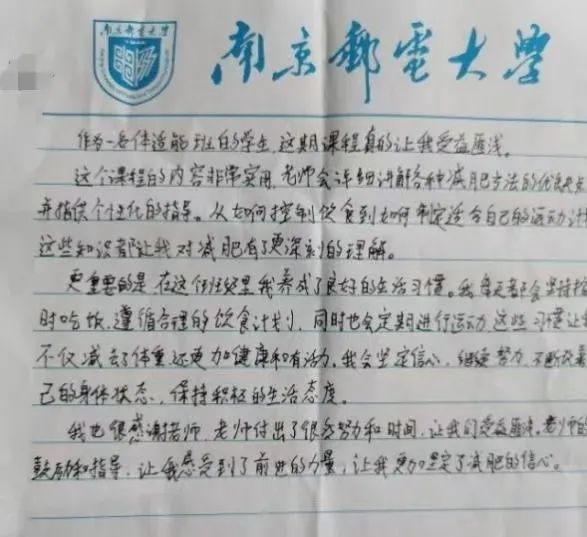 南京邮电大学
南京郵電大學
作为一名体适能班的学生,这期课程真的让我受益匪浅。
这个课程的内容非常实用,老师会详细讲解各种减肥方法的优缺点
并提供个性化的指导。从如何控制饮食到如何制定适合自己的运动计
这些知识都让我对减肥有了更深刻的理解。
更重要的是在这个班级里我养成了良好的生活习惯。我每天都会坚持按
时吃饭,遵循合理的饮食计划,同时也会定期进行运动,这些习惯让
不仅减去了体重,还更加健康和有活力。我会坚定信心,继续努力,不断
己的身体状态,保持积极的生活态度。
我也很感谢老师,老师付出了很多努力和时间,让我们受益匪浅,老师的
鼓励和指导,让我感受到了前进的力量,让我更加坚定了减肥的信心。